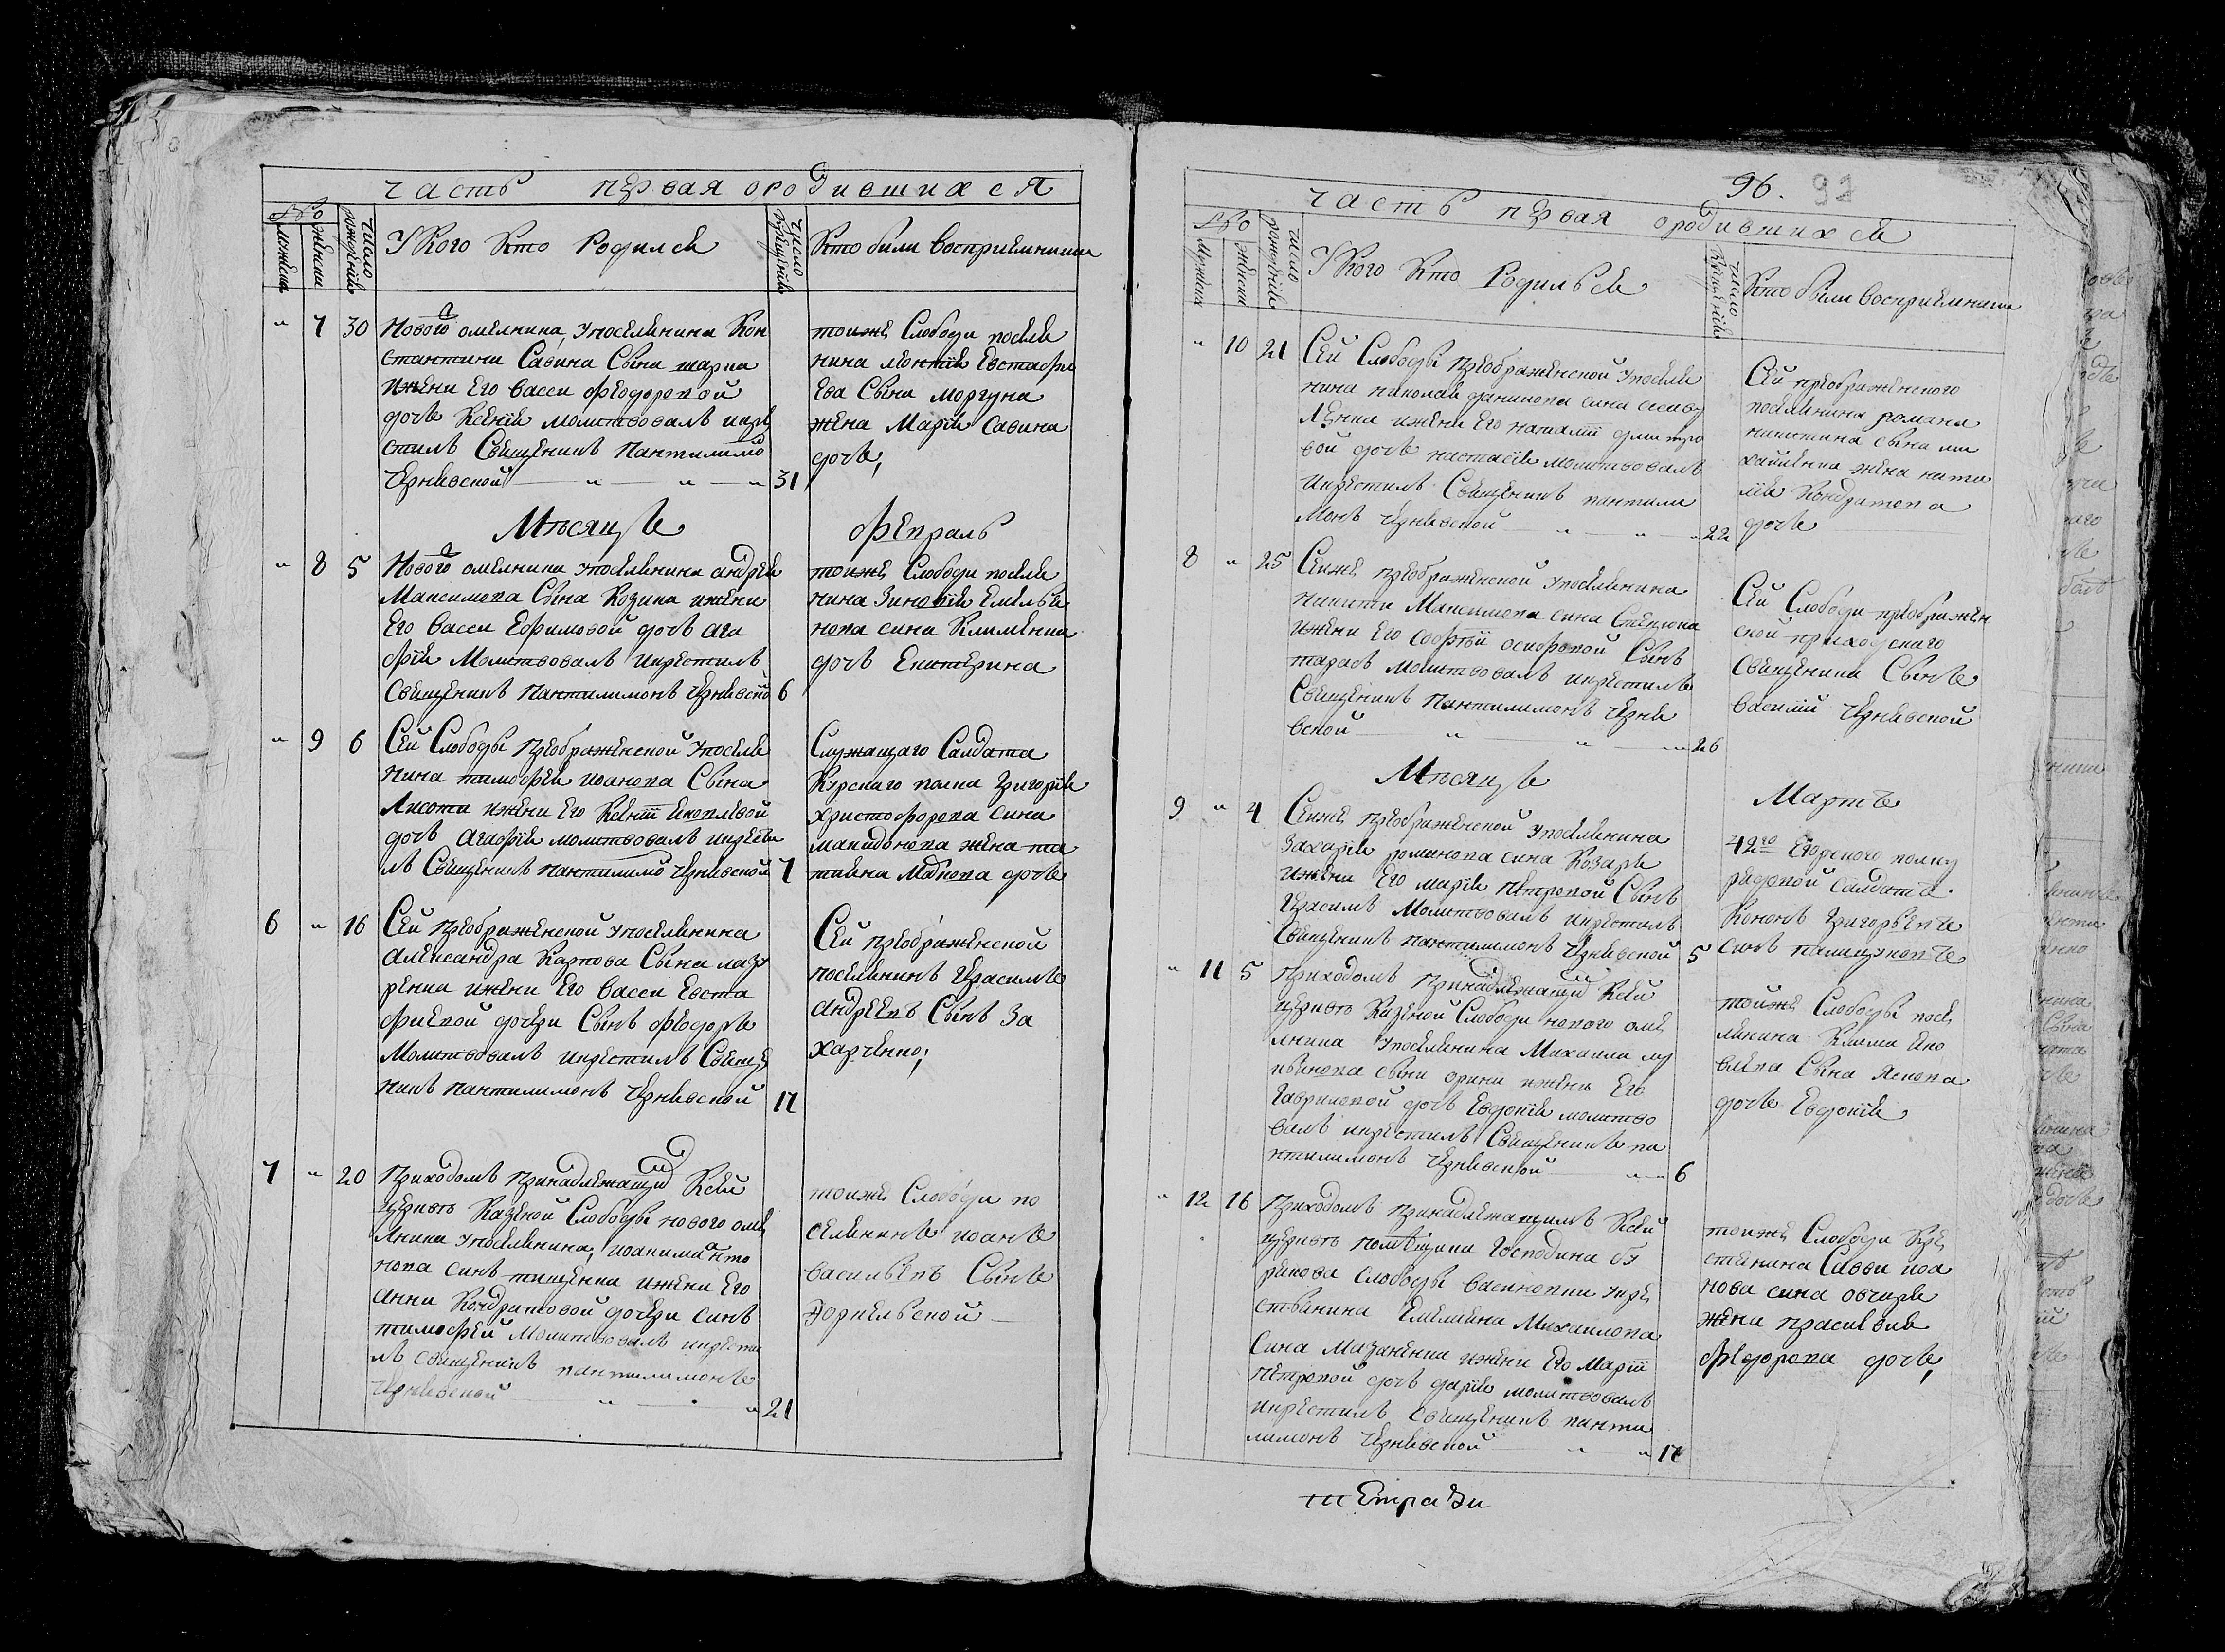 часть первая ородившихся
№
мужеска
женска
число рождения
У Кого Кто Родился
число крещения
Кто били восприемники
" 7 30 Нового омелника, упоселянина Кон
стантина Савина Сына
ижени Его Васси Федоровой
дочь Ксения молитвовалъ икре
стилъ Священникъ Пантилимо
Чернявской " " " 31
тоиже Слободи поселя
нина Евстафи
ева Сына моргуна
жена Мария Савина
дочь,
Месяцъ Февраль
" 8 5 Нового омелника упоселянина андрея
Максимова Сына Козина ижени
Его Васси Ефимовой дочь ага
фия Молитвовалъ икрестилъ
Священникъ Пантилимонъ Чернявской 6
тоиже Слободи поселя
нина Зиновия Емелья
нова сина Клименка
дочь Екатерина
" 9 6 Сей Слободы Преображенской упоселя
нина тимофея иоанова Сына
Лисоти ижени Его Ксении Яковлевой
дочь Агафия молитвовалъ икрести
лъ Священникъ Пантилимо Чернявской 7
Служащаго Салдата
Курскаго полка Григория
христофорова сина
македонова жена та
тияна дочь
6 " 16 Сей Преображенской упоселянина
Александра Карпова Сына лазу
ренка ижени Его Васси Евста
фиевой дочери Сынъ Федоръ
Молитвовалъ икрестилъ Священ
никъ Пантилимонъ Чернявской 17
Сей преображенской
поселянинъ Герасимъ
андреевъ Сынъ За
харченко;
7 " 20 Приходомъ Принадлежащий Ксей
церквъ Казеной Слободы нового омел
лника упоселянина, анто
нова синъ тищенка ижени Его
анни Кондратовой дочери синъ
тимофей Молитвовалъ икрести
лъ священникъ пантилимонъ
Чернявской " " 21
тоиже Слободи по
селянинъ иоанъ
васильевъ Сынъ

96. 92
часть первая ородившихся
№
мужеска
женска
число рождения
У Кого Кто Родилься
число крещения
Кто были восприемники
" 10 21 Сей Слободы преображенской упоселя
нина николая данилова сина
ижени Его наталии дмитро
вой дочь настасия молитвовалъ
икрестилъ Священникъ пантили
монъ Чернявской " " " 22
Сей преображенского
поселянина романа
никитина сына ми
хайленка жена ната
лия Кондратова
дочь
8 " 25 Сейже преображенской упоселянина
никити Максимова сина Степанова
ижени Его Софии осиповой Сынъ
тарасъ молитвовалъ икрестилъ
Священникъ Пантилимонъ Черня
вской " " " 26
Сей Слободи преображен
ской приходскаго
Священника Сынъ
василий Чернявской
Месяцъ Мартъ
9 " 4 Сейже преображенской упоселянина
Захария романова сина Козаря
ижени Его мария петровой Сынъ
Герасимъ Молитвовалъ икрестилъ
Священникъ пантилимонъ Чернявской 5
42го Егорского полку
рядовой Салдатъ
Кононъ Григорьевъ
синъ
" 11 5 Приходомъ Принадлежащий Ксей
церквъ Казеной Слободи нового оме
лника упоселянина Михаила лу
кьянова сына орини ижени Его
Гавриловой дочь Евдокия молитво
валъ икрестилъ Священникъ па
нтилимонъ Чернявской " " 6
тоиже Слободы посе
лянина Клима Яко
влева Сына Яснова
дочь Евдокия
" 12 16 Приходомъ принадлежащимъ Ксей
церквъ помещика Господина бу
ракова слободы васиковки укре
стьянина Емелияна Михаилова
Сина Мазаненка ижени Его Марии
петровой дочь дария молитвовалъ
икрестилъ Священникъ панти
лимонъ Чернявской " " 17
тоиже Слободи Кре
стянина Савви иоа
нова сина овчаря
жена прасковия
Федорова дочь,